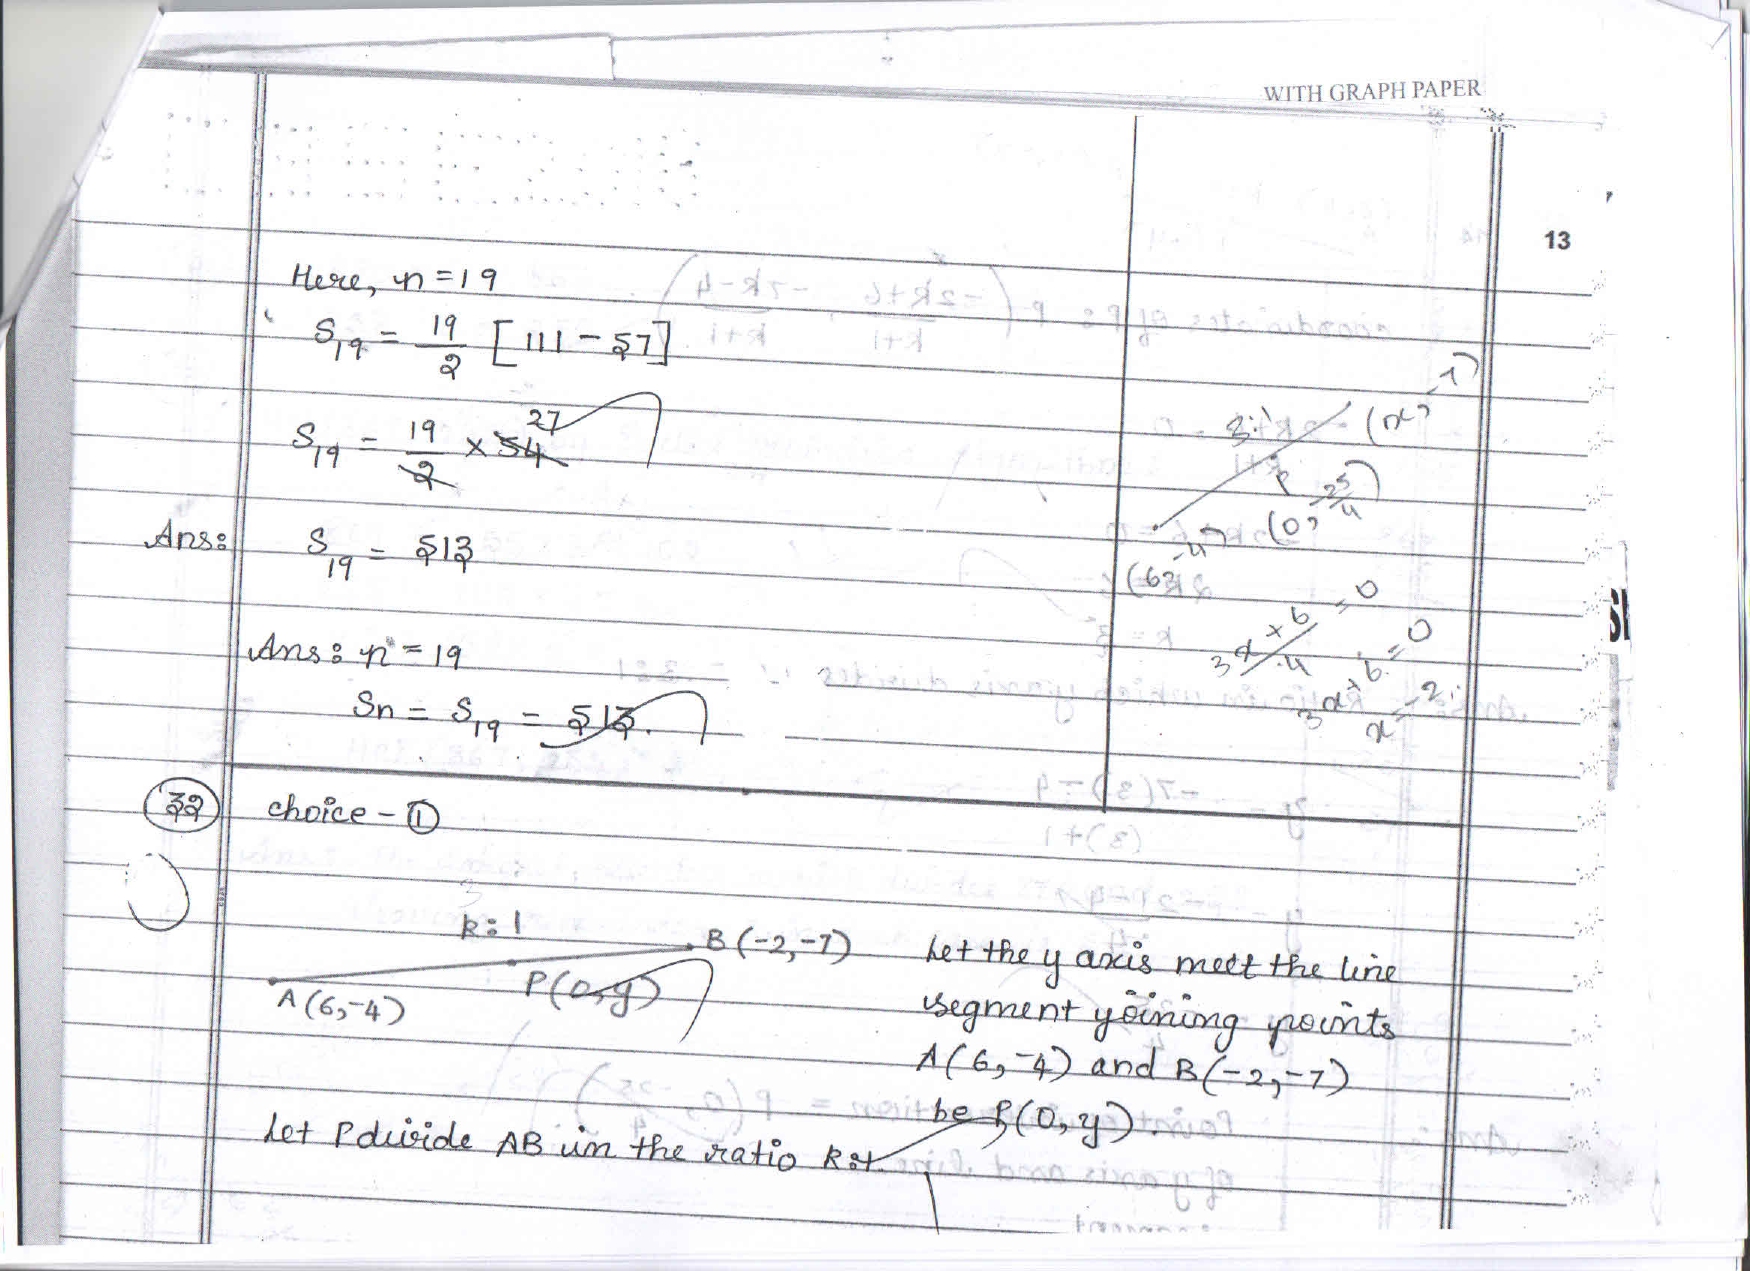 WITH GRAPH PAPER
13
Here, n = 19
S₁₉ = 19/2 [111 - 57]
S₁₉ = 19/2 × 54 27
Ans: S₁₉ = 513
Ans: n = 19
Sn = S₁₉ = 513.
3:1
(x, -7)
P
(0, -25/4)
(6, -4)
3x + 6 / 4 = 0
3x + 6 = 0
x = -2
32 choice - ①
3
k : 1
A (6, -4)
P (0, y)
B (-2, -7)
Let the y axis meet the line
segment joining points
A(6, -4) and B(-2, -7)
be P(0, y).
Let P divide AB in the ratio k:1.